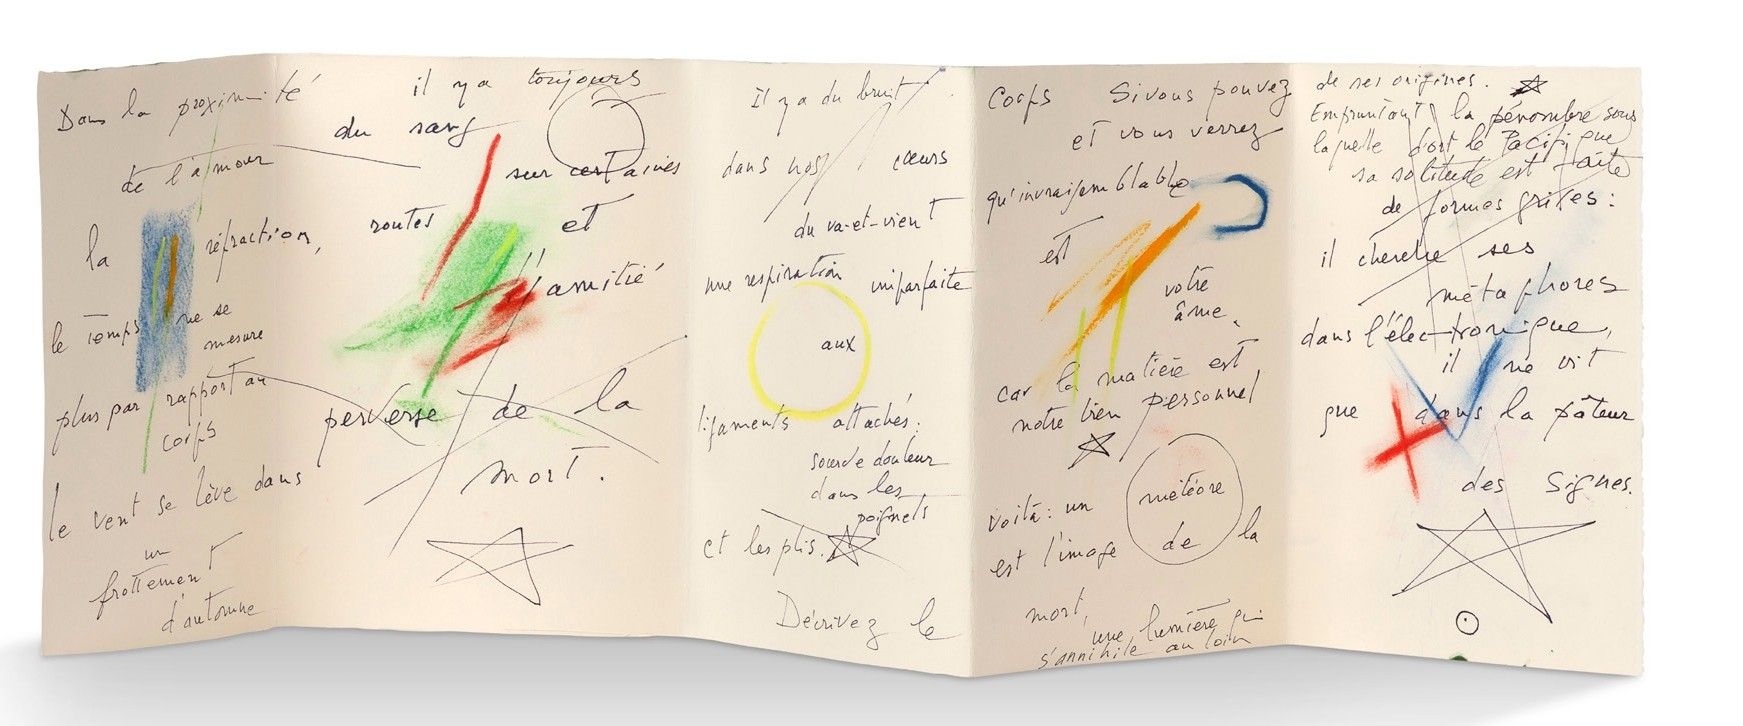 Dans la proximité
de l'amour
la réfraction,
le temps ne se
mesure
plus par rapport au
corps
le vent se lève dans
un
frottement
d'automne
il y a toujours
du sang
sur certaines
routes et
l'amitié
perverse de la
mort.
Il y a du bruit
dans nos cœurs
du va-et-vient
une respiration imparfaite
aux
ligaments attachés:
sourde douleur
dans les
poignets
et les plis.
Décrivez le
corps Si vous pouvez
et vous verrez
qu'invraisemblable
est
votre
âme.
car la matière est
notre bien personnel
voilà: un météore
est l'image de la
mort,
une lumière qui
s'annihile au loin
de ses origines.
Empruntant la pénombre sous
laquelle dort le Pacifique
sa solitude est faite
de formes grises:
il cherche ses
métaphores
dans l'électronique,
il ne vit
que dans la pâleur
des signes.